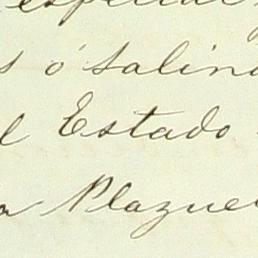 especial
s ó salina
l Estado
a Plazue